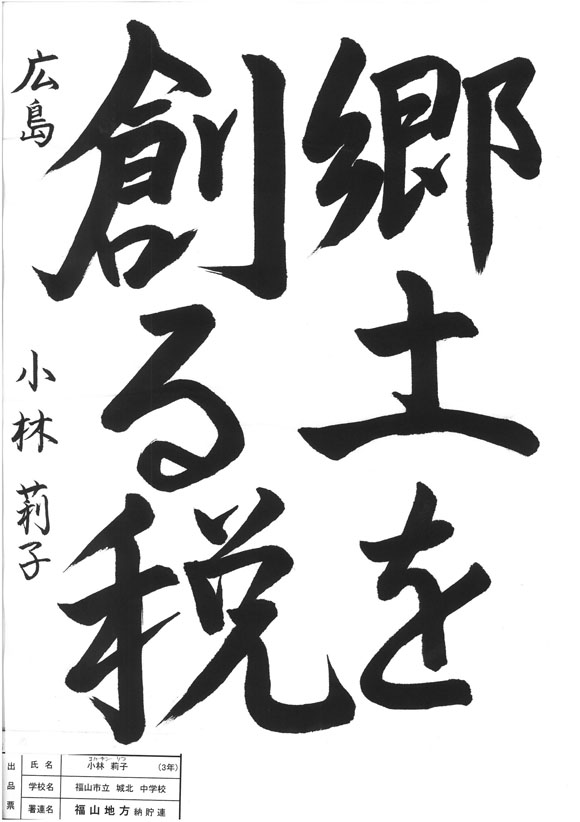 郷土を
創る税
広島 小林莉子
出品票
氏名 小林 莉子 (3年)
学校名 福山市立 城北 中学校
署連名 福山地方納貯連